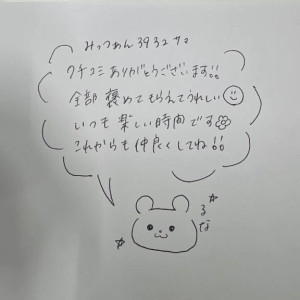 みっつめん3932サマ
クチコミありがとうございます!!
全部褒めてもらえてうれしい
いつも楽しい時間です
これからも仲良くしてね!!
るな